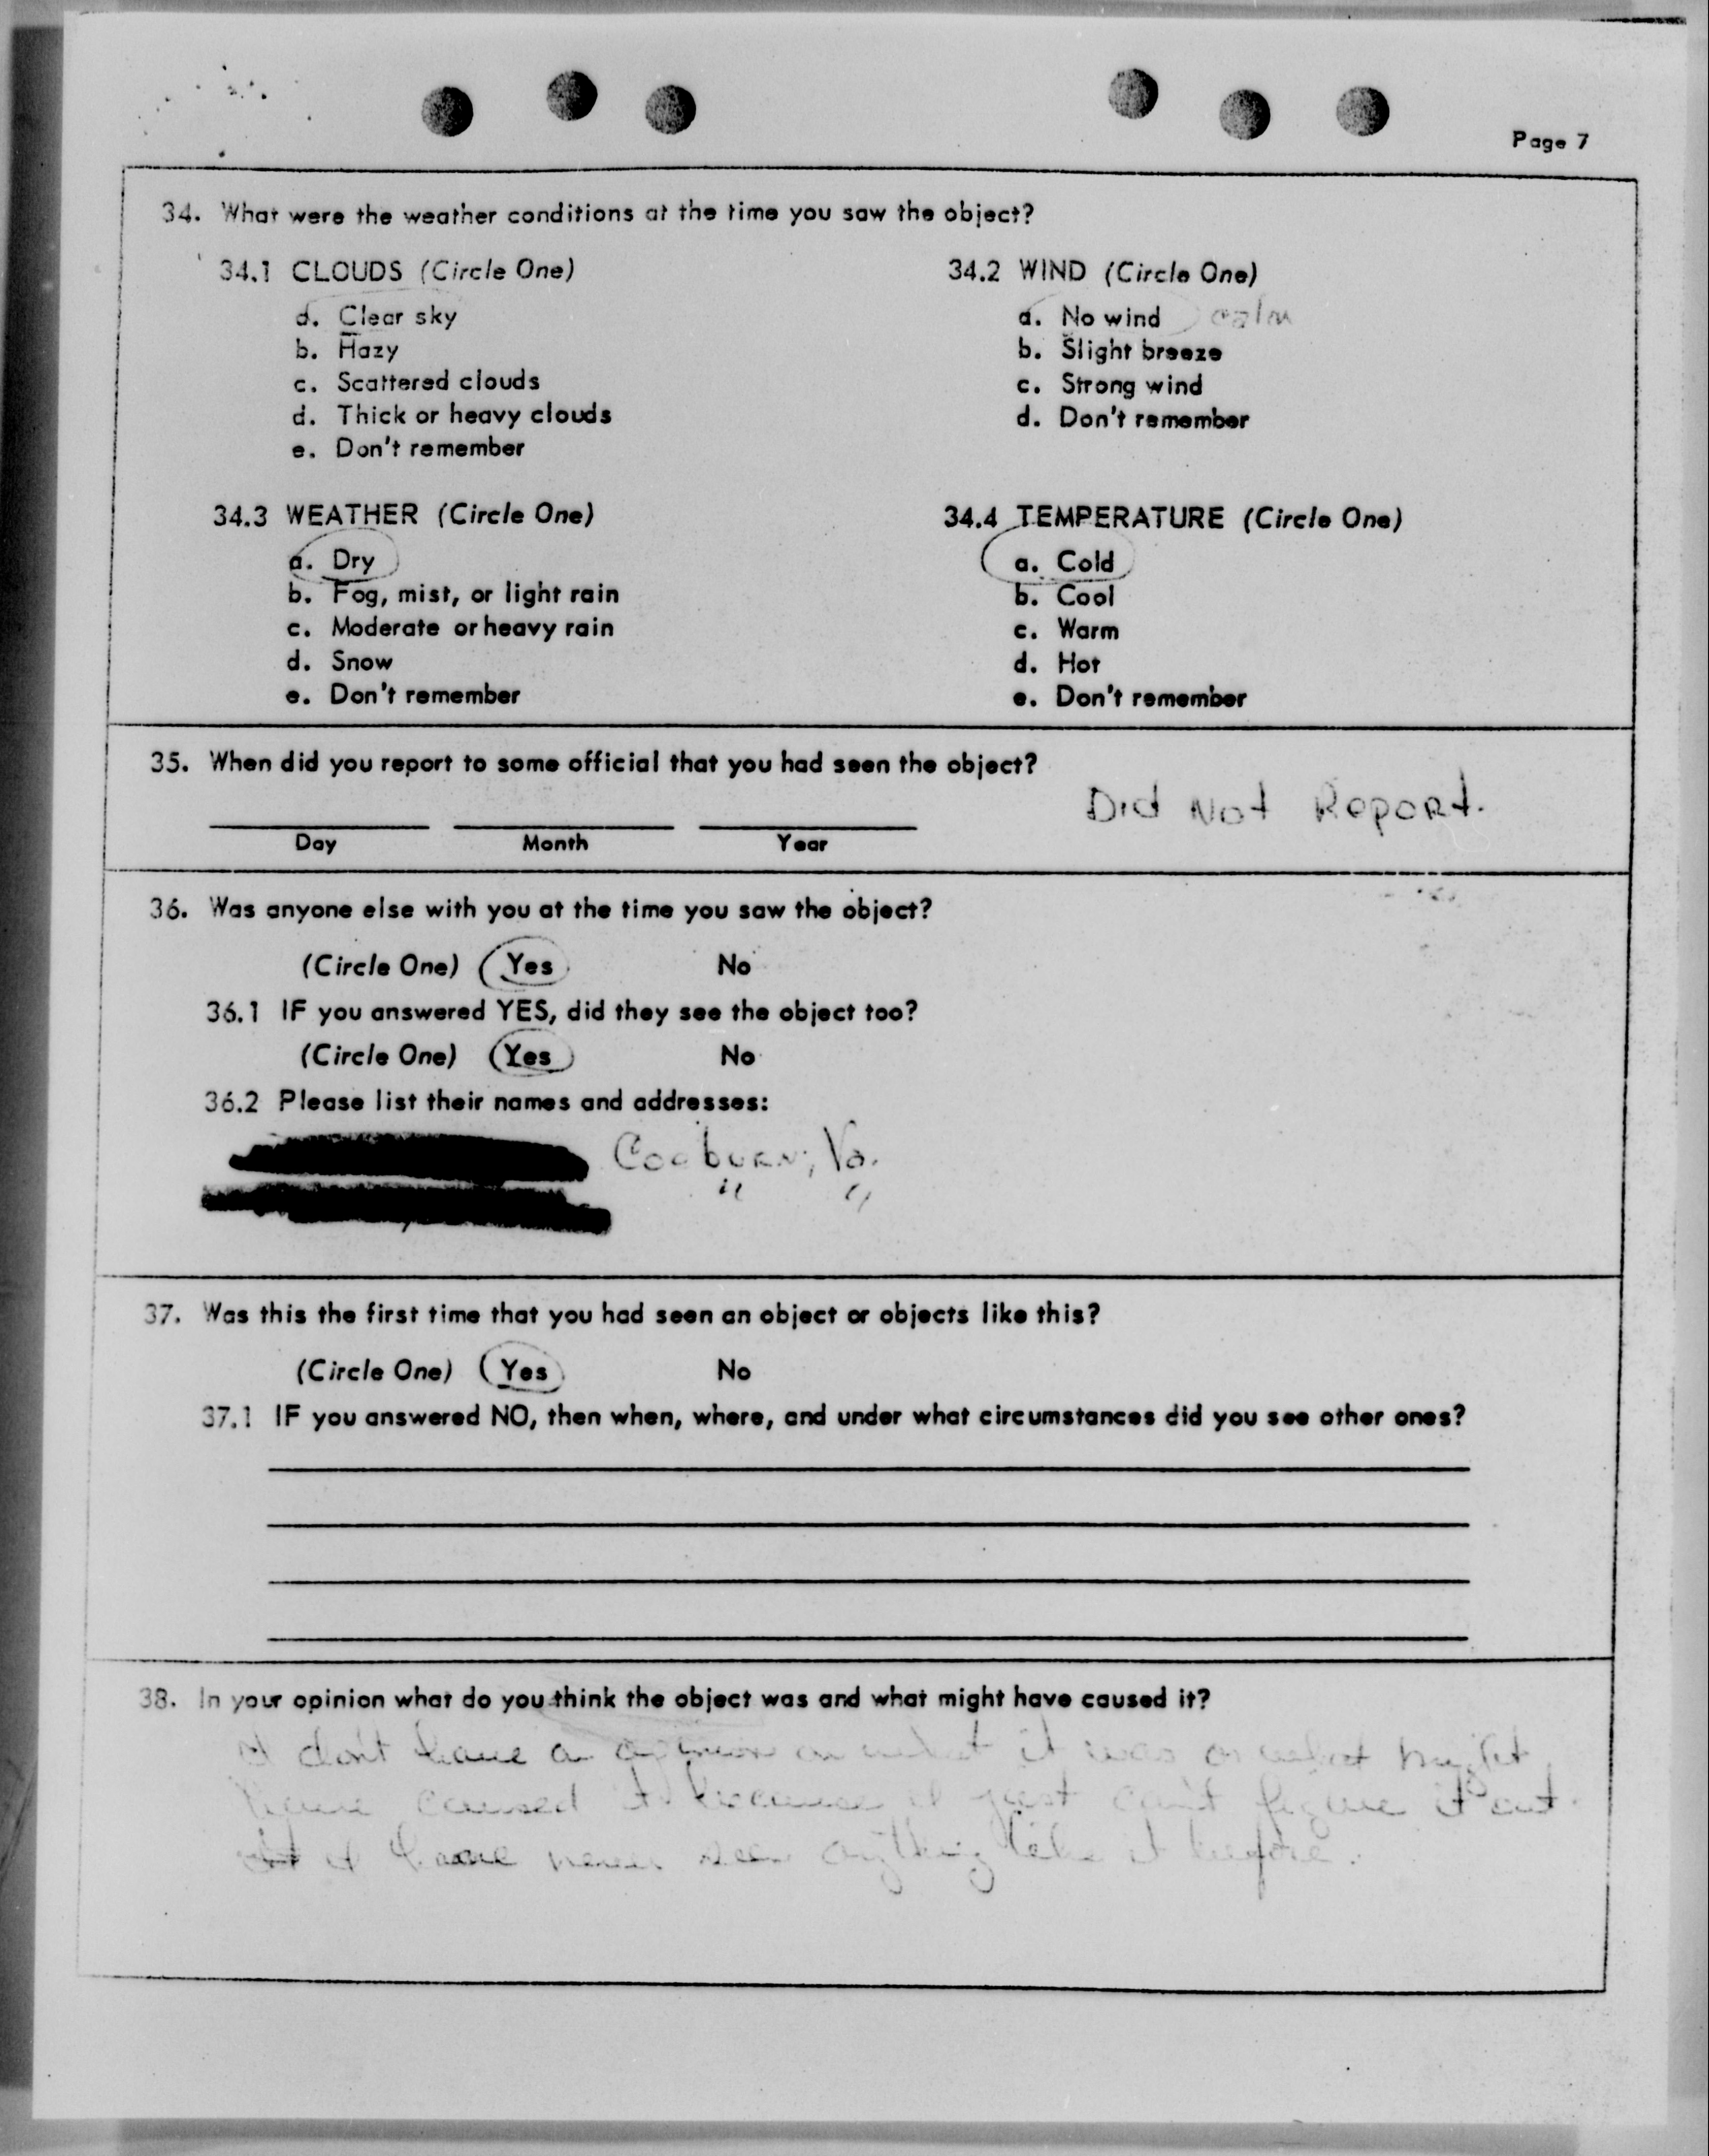 Page 7
34. What were the weather conditions at the time you saw the object?
34.1 CLOUDS (Circle One)
a. Clear sky
b. Hazy
c. Scattered clouds
d. Thick or heavy clouds
e. Don't remember
34.2 WIND (Circle One)
a. No wind calm
b. Slight breeze
c. Strong wind
d. Don't remember
34.3 WEATHER (Circle One)
a. Dry
b. Fog, mist, or light rain
c. Moderate or heavy rain
d. Snow
e. Don't remember
34.4 TEMPERATURE (Circle One)
a. Cold
b. Cool
c. Warm
d. Hot
e. Don't remember
35. When did you report to some official that you had seen the object?
Did Not Report.
Day Month Year
36. Was anyone else with you at the time you saw the object?
(Circle One) Yes No
36.1 IF you answered YES, did they see the object too?
(Circle One) Yes No
36.2 Please list their names and addresses:
Coeburn, Va.
" "
37. Was this the first time that you had seen an object or objects like this?
(Circle One) Yes No
37.1 IF you answered NO, then when, where, and under what circumstances did you see other ones?
38. In your opinion what do you think the object was and what might have caused it?
I don't have a opinion on what it was or what might
have caused it because I just can't figure it out.
I have never seen anything like it before.